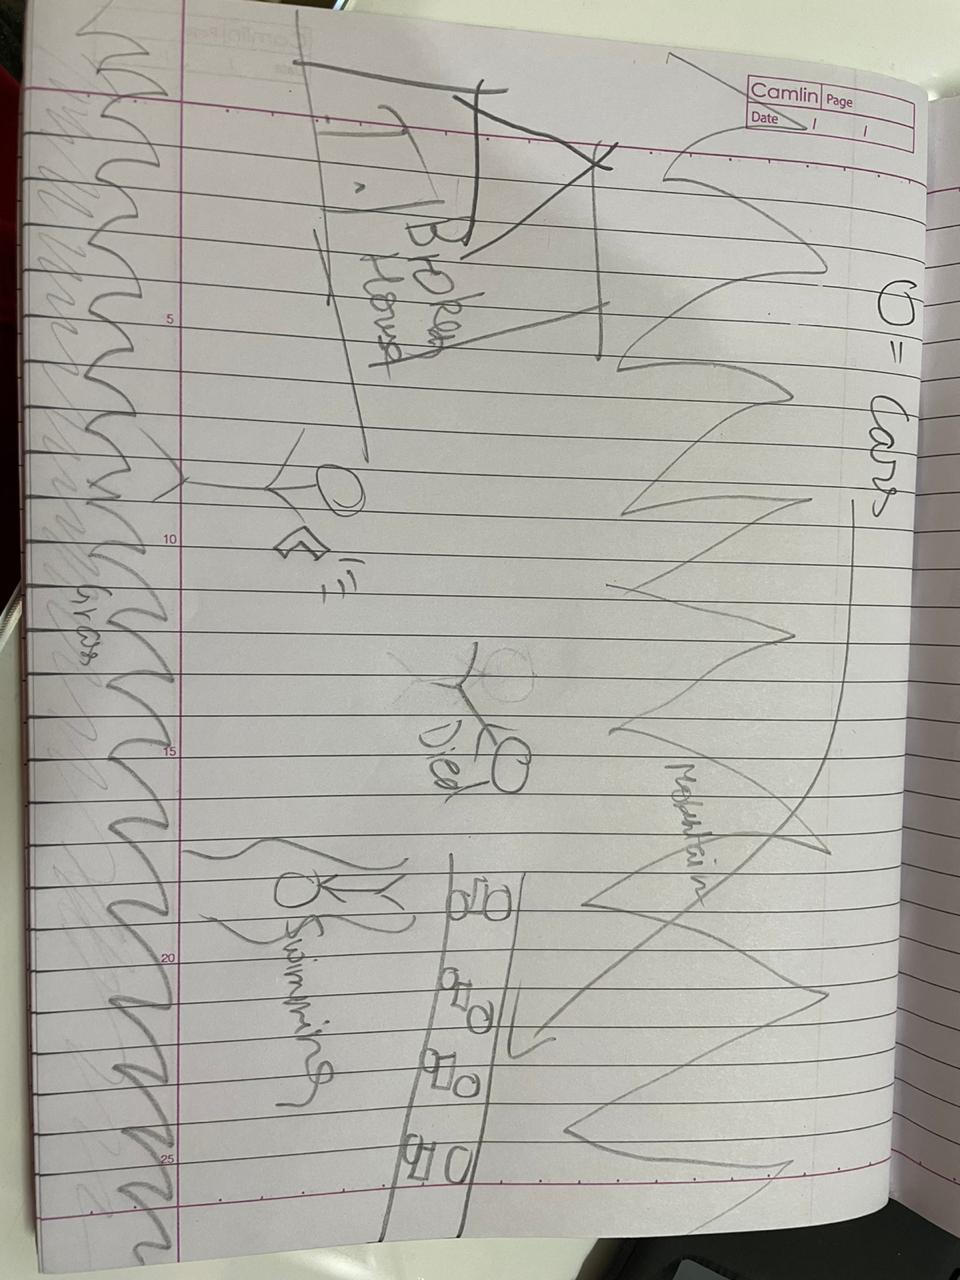 Camlin Page
Date / /
O = Cars
Mountain
Broken
House
Died
Swimming
Grass
5
10
15
20
25